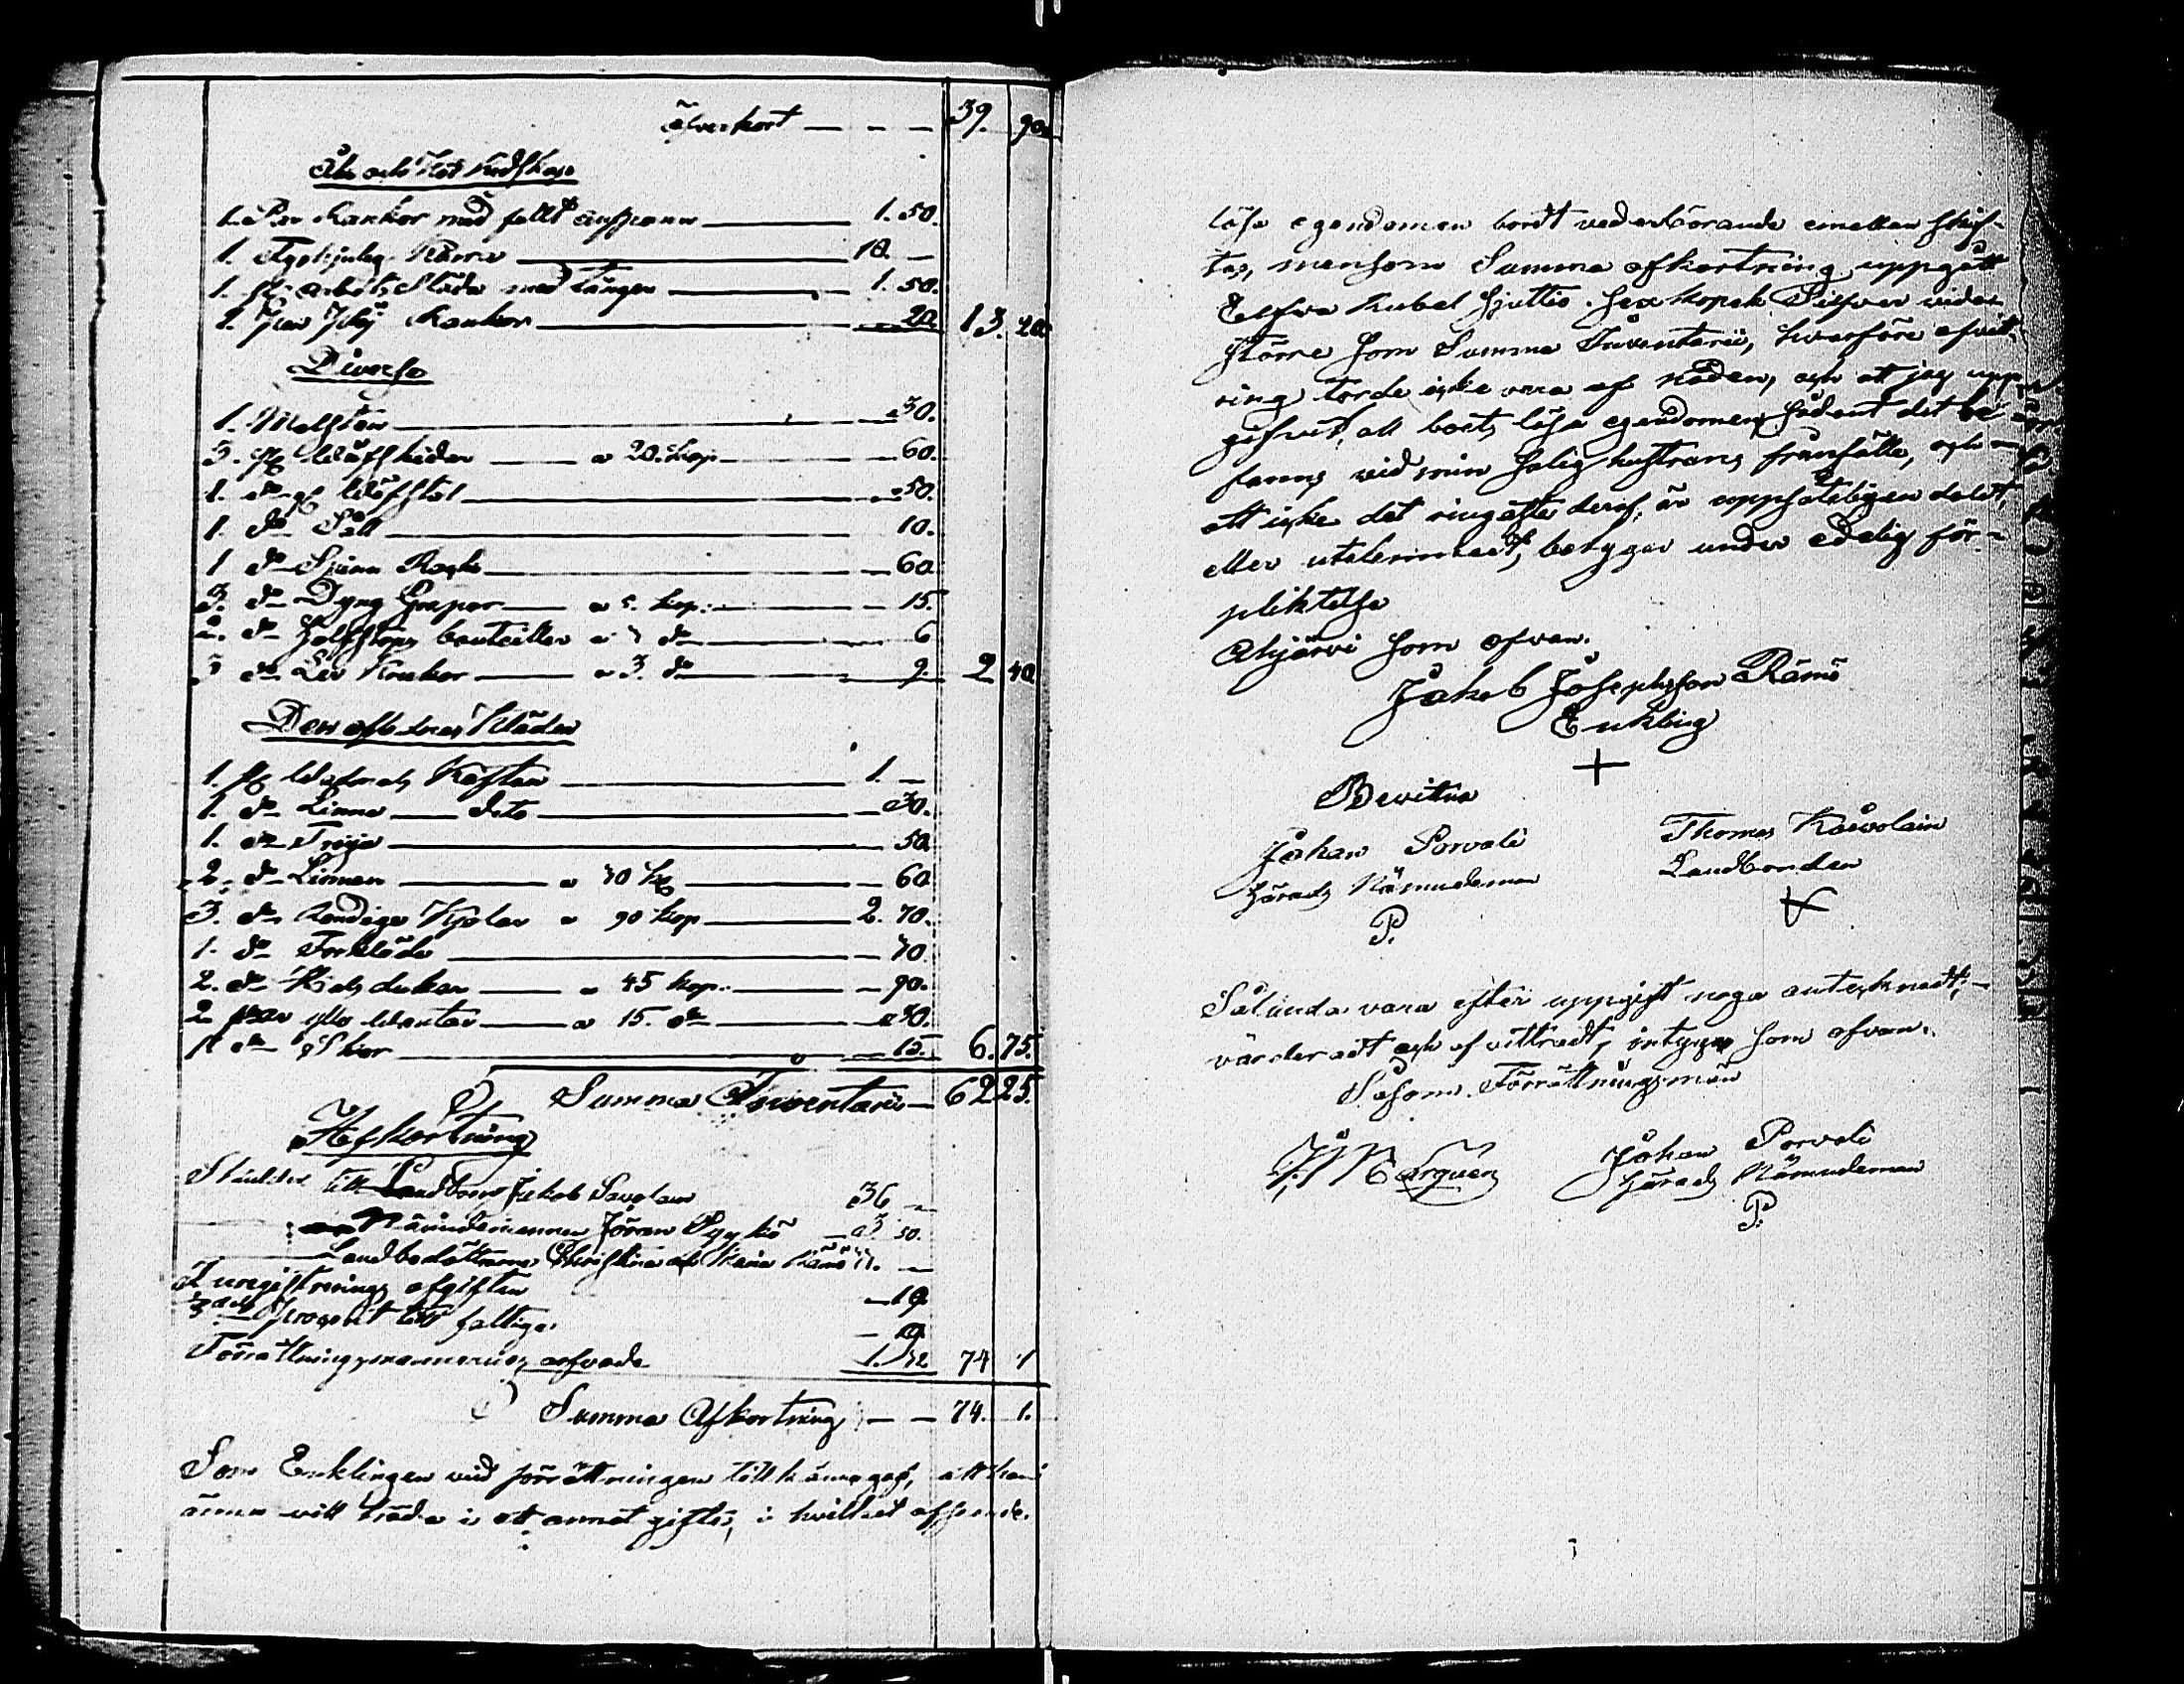 öfverkort — — — 39. 90.
Åk och Kör Redskap
1. Par Kankor med fullt anspann — 1. 50.
1. Tyehjulig Kärra — 10. —
1. st arbets Släda med tånger — 1. 50.
1. Höj Kankor — 20. 13. 20.
Diverse
1. — 30.
3. st Wäfskider — a 20. kop — 60.
1. do Wäfstol — 50.
1. do Såll — 10.
1 do Spinn Rock — 60
3. do Dyng Grepar — a 5. kop. — 15.
2. do Halfstops bouteiller a 3 do — 6
3 do Ler Krukor — a 3. do — 9. 2 40
Den aflednas Kläder
1. st Walmars Kaftan — 1. —
1. do Linne — dito — 30.
1. do Tröja — 50.
2. do Linnen — a 30 k — 60
3. do Randiga Kjolar a 90 kop — 2. 70.
1. do Förkläde — 30.
2. do Hals dukar — a 45 kop. — 90.
2 par ylle Wantar — a 15. do — 30.
1 do Skor — 15. 6. 75.
Summa Inventarii — 62 25.
Afkortning
Skulder till Landbon Jakob Savolain 36 —
Nämndemannen Jöran Pyykö — 3 50.
Landbodöttrarne Christina och Maria Rämö 33. —
Inregistrerings afgiften — 19.
procent till fattiga.
Förrättningsmannernes arfvode 1. 32 74 1
Summa Afkortning — — 74. 1.
Som Enklingen vid förrättningen tillkännagaf, att han
ämnar träda i ett annat gifte, i hvilket afseende
lösa egendomen bordt vederbörande emellan skif-
tas, men som Summa afkortning uppgått
Elfva Rubel sjuttio sex kopek Silfver vida
större som Summa Inventarii, hvarföre afvit-
ring torde icke vara af nöden, och att jag upp-
gifvet, all borts lösa egendomen, sådant det be-
fanns vid min salig hustrus frånfälle, och
att icke det ringaste deraf, är uppsåteligen doldt,
eller utelemnadt, betygar under edelig för-
pliktelse
Ahjärvi som ofvan.
Jakob Josephsson Rämö
Enkling
+
Bevitna
Johan Porvali
Härads Nämndeman
P.
Thomas Kaivolain
Landbonden
+
Sålunda vara efter uppgift noga antecknadt,
värderadt och afvittradt, intyga som ofvan.
Såsom Förrättningsmän
Johan Porvali
Härads Nämndeman
P.